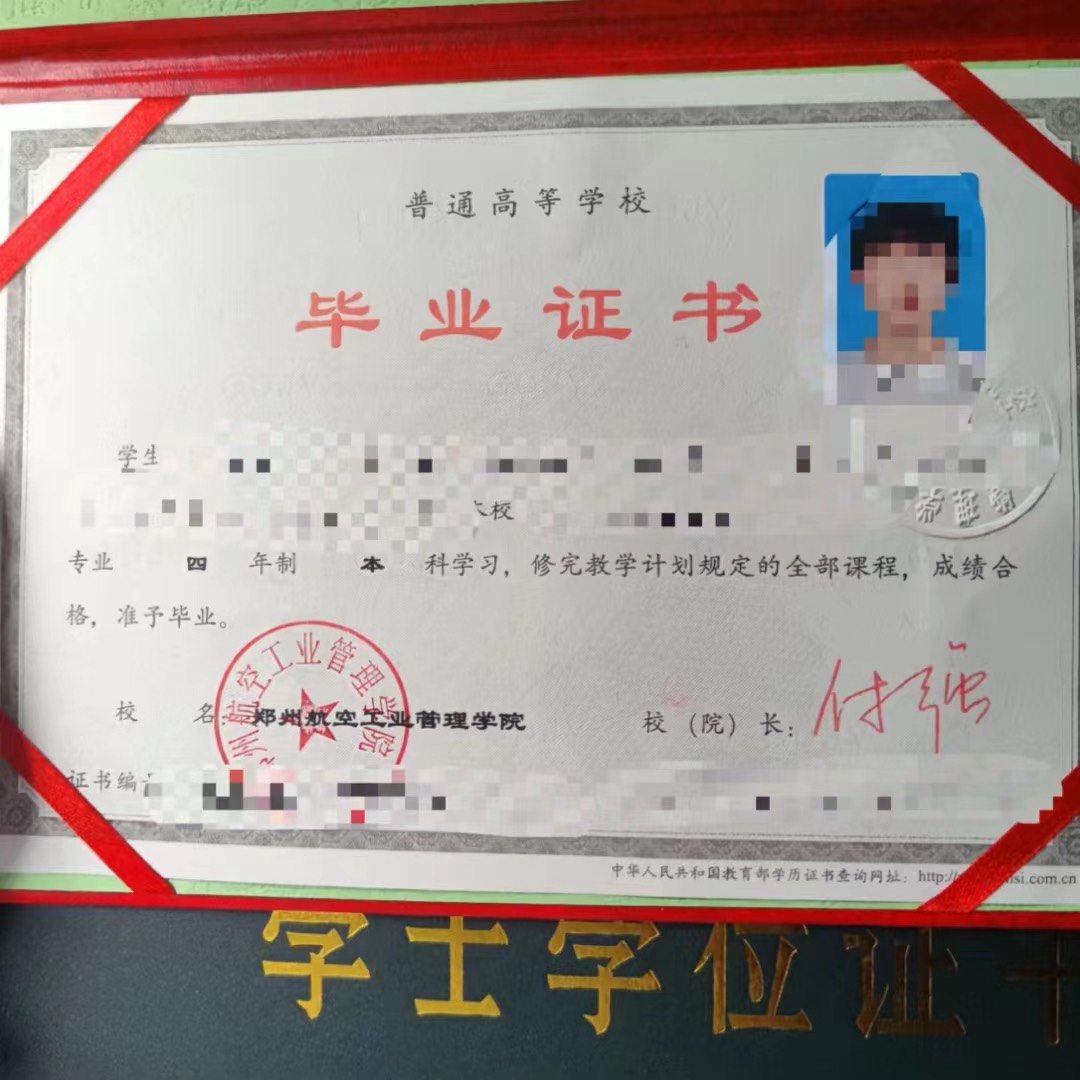 普通高等学校
毕业证书
学生
本校
专业 四 年制 本 科学习，修完教学计划规定的全部课程，成绩合
格，准予毕业。
州航空工业管理学院
校 名：郑州航空工业管理学院 校（院）长：付强
证书编
中华人民共和国教育部学历证书查询网址：http://si.com.cn
学士学位证